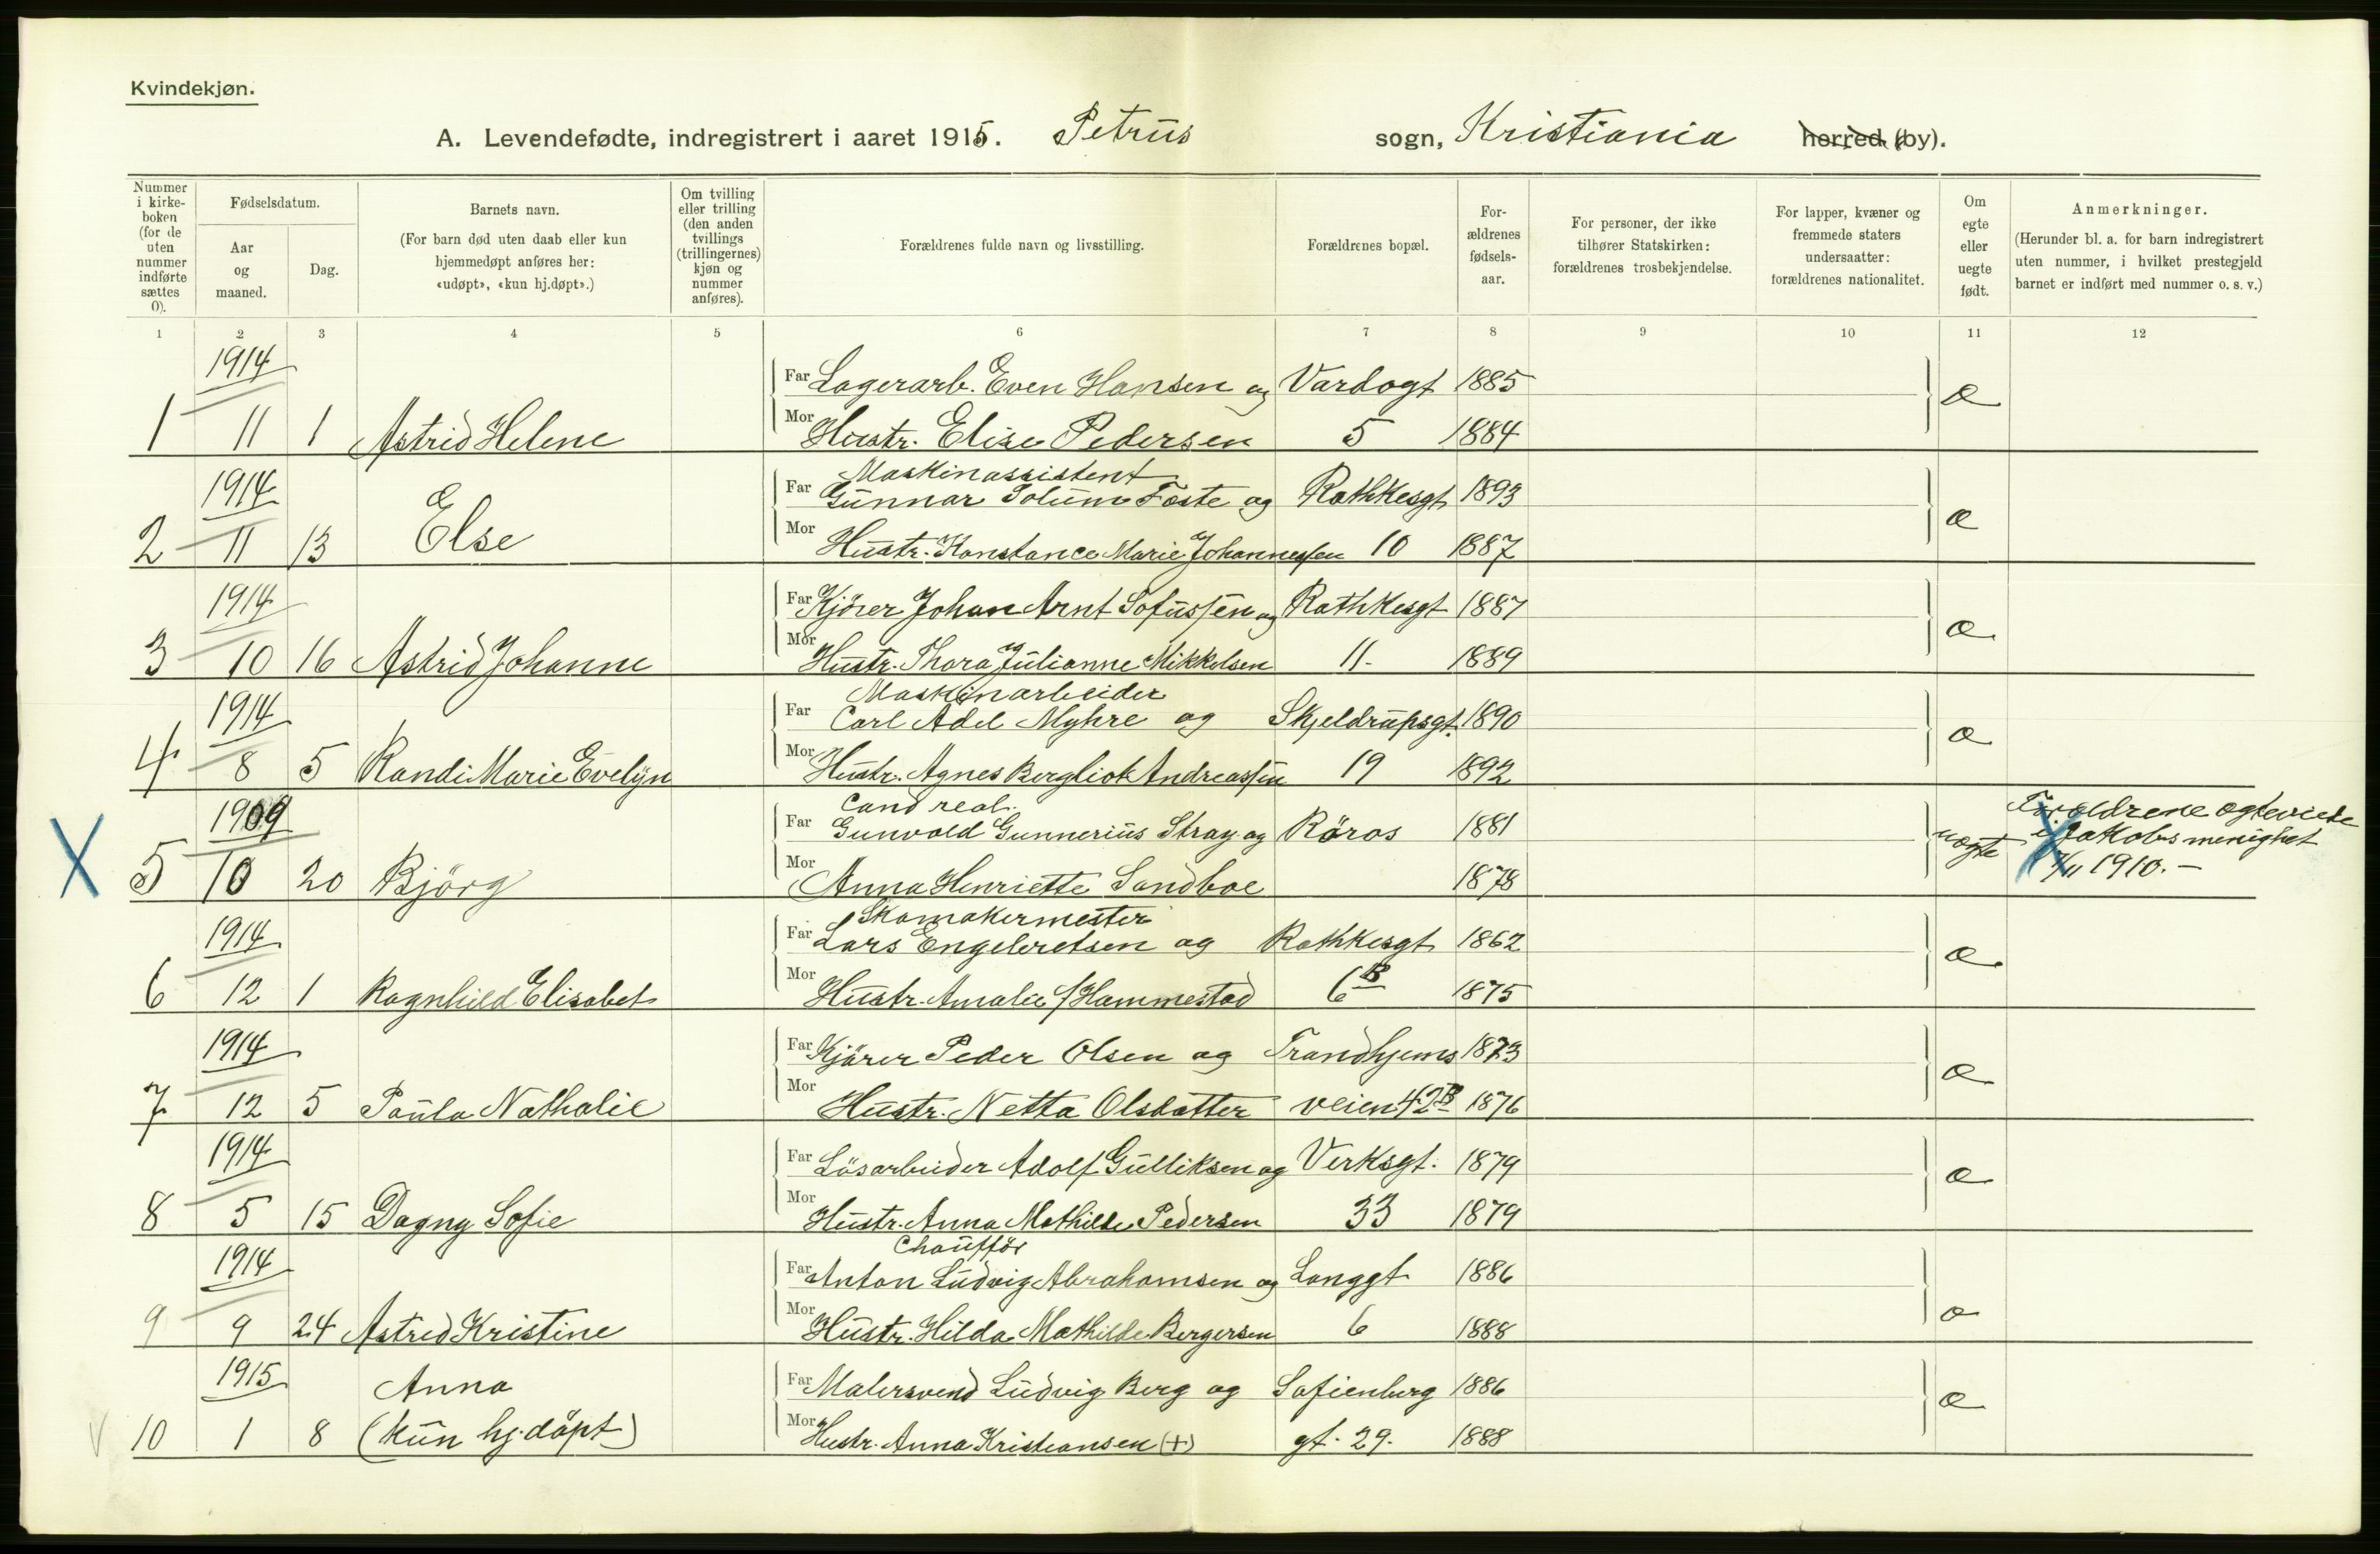 Kvindekjøn.
A. Levendefødte, indregistrert i aaret 1915. Petrus sogn, Kristiania herred (by).
Nummer i kirkeboken (for de uten nummer indførte sættes 0).
Fødselsdatum.
Aar og maaned.
Dag.
Barnets navn.
(For barn død uten daab eller kun hjemmedøpt anføres her: «udøpt», «kun hj.døpt».)
Om tvilling eller trilling (den anden tvillings (trillingernes) kjøn og nummer anføres).
Forældrenes fulde navn og livsstilling.
Forældrenes bopæl.
Forældrenes fødselsaar.
For personer, der ikke tilhører Statskirken: forældrenes trosbekjendelse.
For lapper, kvæner og fremmede staters undersaatter: forældrenes nationalitet.
Om egte eller uegte født.
Anmerkninger.
(Herunder bl. a. for barn indregistrert uten nummer, i hvilket prestegjeld barnet er indført med nummer o. s. v.)
1 2 3 4 5 6 7 8 9 10 11 12
1914
Far Lagerarb. Even Hansen og Vardøgt 1885 æ
1 11 1 Astrid Helene Mor Hustr. Elise Pedersen 5 1884
Maskinassistent
1914 Far Gunnar Solum Foste og Rathkesgt 1893 æ
2 11 13 Else Mor Hustr. Konstance Marie Johannessen 10 1887
1914 Far Kjörer Johan Arnt Sofussen og Rathkesgt 1887 æ
3 10 16 Astrid Johanne Mor Hustr. Thora Julianne Mikkelsen 11.- 1889
Maskinarbeider
1914 Far Carl Adel Myhre og Skjeldrupsgt. 1890 æ
4 8 5 Randi Marie Evelyn Mor Hustr. Agnes Bergliot Andreassen 19 1892
Cand real.
1909 Far Gunvald Gunnerius Stray og Röros 1881 uægte Forældrene ægteviede
i Jakobs menighet
X 5 10 20 Björg Mor Anna Henriette Sandboe 1878 X /11 1910.-
Skomakermester
1914 Far Lars Engebretsen og Rathkesgt 1862 æ
6 12 1 Ragnhild Elisabet Mor Hustr. Amalie f/Hammestad 6B 1875
1914 Far Kjörer Peder Olsen og Trondhjems 1873 æ
7 12 5 Paula Nathalie Mor Hustr. Netta Olsdatter veien 42B 1876
1914 Far Lösarbeider Adolf Gulliksen og Verksgt. 1879 æ
8 5 15 Dagny Sofie Mor Hustr. Anna Mathilde Pedersen 33 1879
Chaufför
1914 Far Anton Ludvig Abrahamsen og Langgt 1886
9 9 24 Astrid Kristine Mor Hustr. Hilda Mathilde Bergersen 6 1888 æ
1915 Anna Far Malersvend Ludvig Berg og Sofienberg 1886 æ
V 10 1 8 (kun hj.döpt) Mor Hustr. Anna Kristiansen (+) gt. 29. 1888